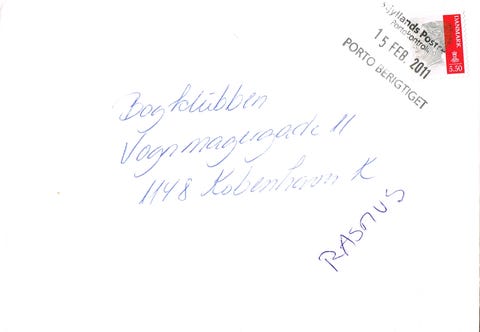 Sjyllands Post
Portokontrol
15 FEB. 2011
PORTO BERIGTIGET
DANMARK
5.50
Bogklubben
Vognmagergade 11
1148 København K
RASMUS